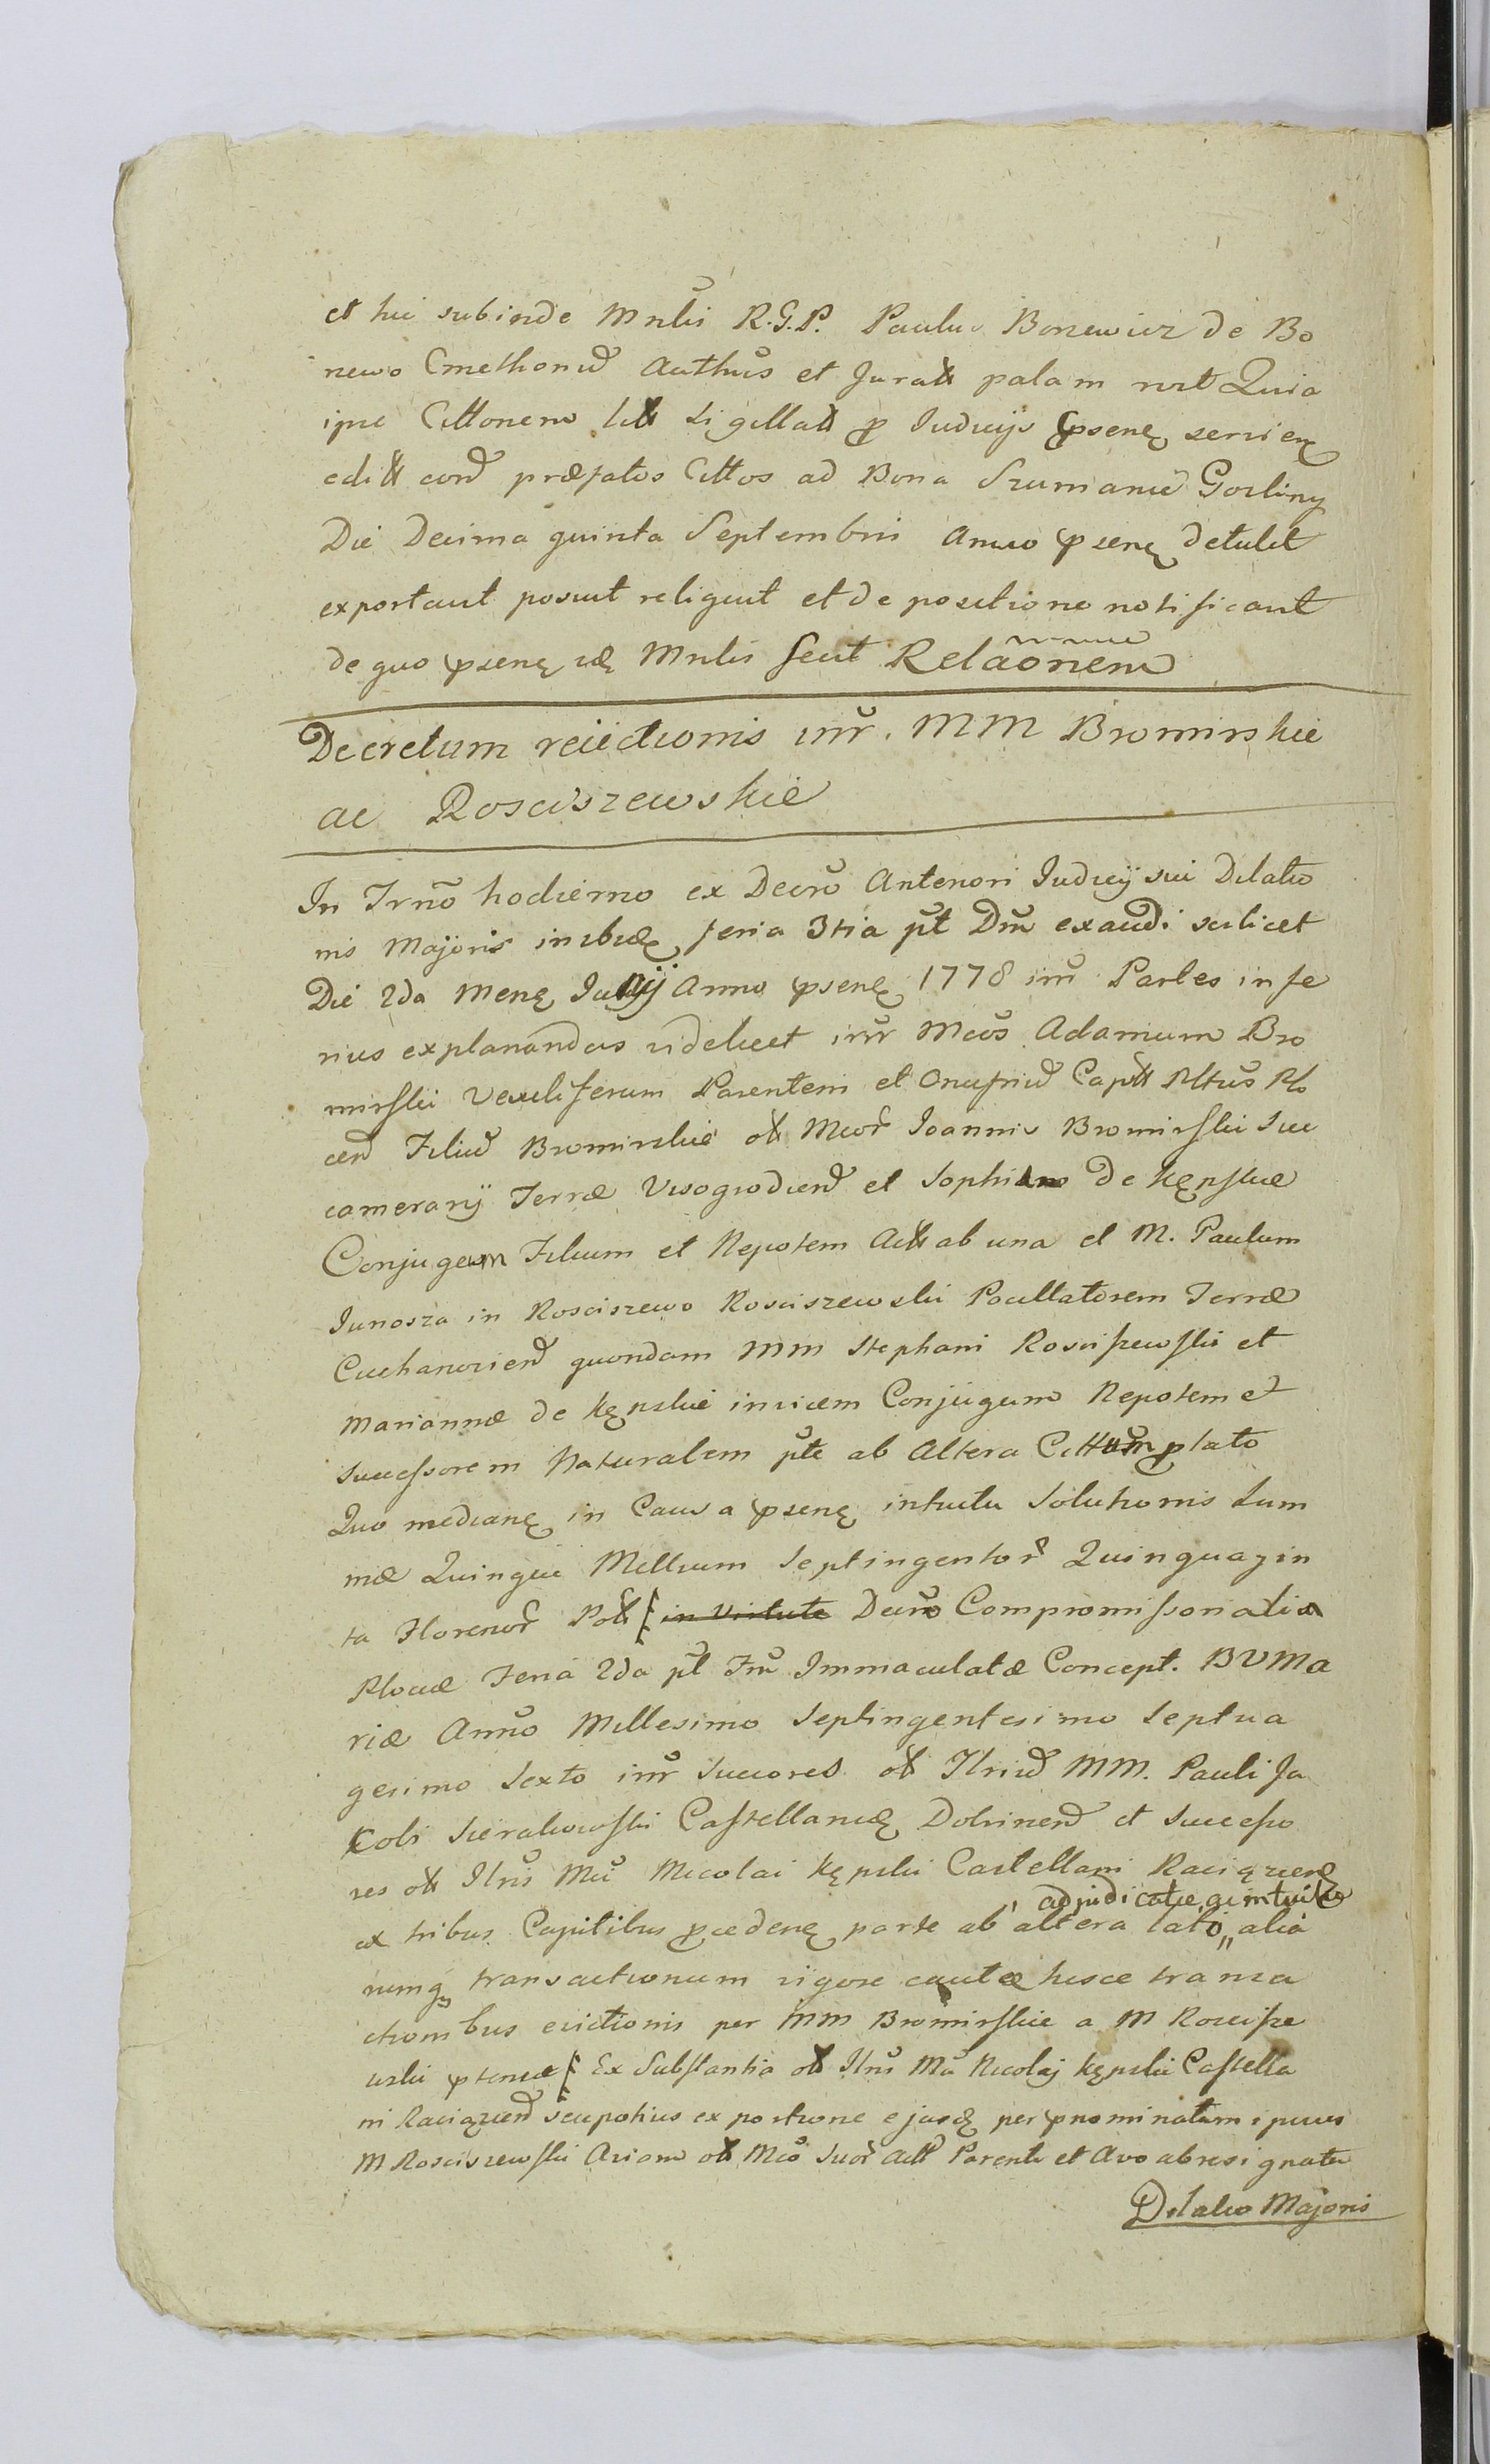 et hic subinde Mnlis R.G.P. Paulus Boncewicz de Bo
newo Cmethonũ Authũs et Jurattt palam rvit Quia
ipse Cittonem litt sigillatt p Judicijs psenę servien
editt corð præfatos Cittos ad Bona Szumanie Gozliny
Die Decima quinta Septembris Anno psenę detulit
exportavit posuit reliquit et de positione notificavit
de quo psenę idę Mnlis fecit Relãonem
Decretum reiectionis intr. MM Bromirskie
ac Rosciszewskie
In Trno hodierno ex Decro Anteriori Judicij sui Dilatio
nis Majoris in ibidę feria 3tia pt Dm exaudi scilicet
Die 2da Mens Junij Anno psenę 1778 intr Partes infe
rius explanandas videlicet intr Mcos Adamum Bro
mirski Vexiliferum Parentem et Onufriũ Captt Pltus Plo
cenð Filiũ Bromirskie ott Mcor Joannis Bromirski Suc
camerarij Terræ Visogrodienð et Sophiam de Kępskie
Conjugem Filium et Nepotem Acttt ab una et M. Paulum
Junosza in Rosciszewo Rosciszewski Pocillatorem Terræ
Ciechanovienð quondam MM Stephani Rosciszewski et
Mariannæ de Kępskie invicem Conjugum Nepotem et
Successorem Naturalem pte ab Altera Cittum plato
Quo medianę in Causa psenę intuitu Solutionis Sum
mæ Quinque Millium Septingentor Quinquagin
ta Florenor Pott in virtute Decro Compromissorialia
Plociæ Feria 2da pt Fm Immaculatæ Concept. BVMa
riæ Anno Millesimo Septingentesimo Septua
gesimo Sexto intr Succores ott Illriũ MM. Pauli Ja
cobi Sierakowski Castellanidę Dobrinenð et Successo
res ott Ilris Mci Nicolai Kępski Castellani Raciązienę
adjudicatæ ac intuitu
ex tribus Capitibus pcedenę parte ab altera lato „ alia
rumq transactionum vigore cautæ hisce transa
ctionibus evictionis per MM Bromirskie a M Roscisze
wski ptensæ Ex Substantia ott Ilris Mci Nicolaj Kępski Castella
ni Raciązienð seu potius ex portione ejusdę per pnominatum ipsius
M Rosciszewski Aviam ott Mco Suor Actt Parenti et Avo abresignata
Dilatio Majoris